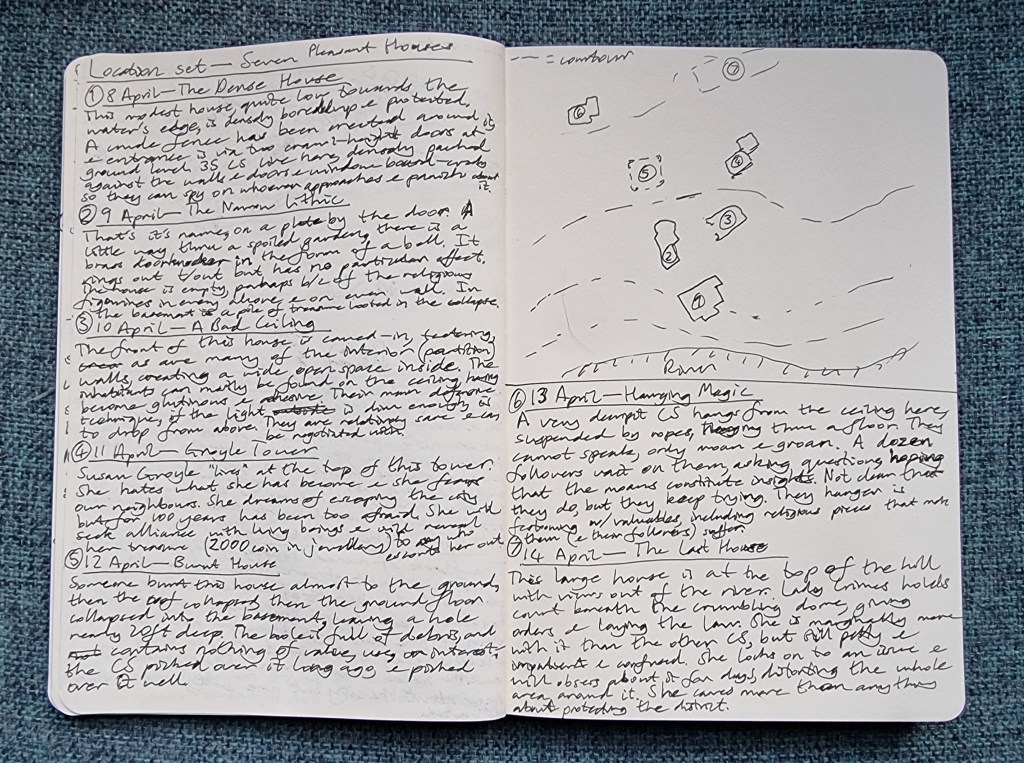 Location set — Seven Pleasant Houses
① 8 April — The Dense House
This modest house, quite low towards the
water's edge, is densely boarded up & protected.
A crude fence has been erected around it,
& entrance is via two crawl-height doors at
ground level. 35 CS live here, densely packed
against the walls & doors & window board-cracks
so they can spy on whoever approaches & panic about
it.
② 9 April — The Narrow Lithic
That's it's name, on a plate by the door. A
little way thru a spoiled garden, there is a
brass doorknocker in the form of a ball. It
rings out t/out but has no particular effect.
The house is empty, perhaps b/c of the religious
figurines in every alcove & on every wall. In
the basement is a pile of treasure looted in the collapse.
③ 10 April — A Bad Ceiling
The front of this house is caved-in,
as are many of the interior (partition)
walls, creating a wide open space inside. The
inhabitants can mainly be found on the ceiling, having
become glutinous & adhesive. Their main defensive
technique, if the light is dim enough, is
to drop from above. They are relatively sane & can
be negotiated with.
④ 11 April — Groyle Tower
Susan Groyle "lives" at the top of this tower.
She hates what she has become & she fears
our neighbours. She dreams of escaping the city
but for 100 years has been too afraid. She will
seek alliance with living beings & will reveal
her treasure (2000 coin in jewellery) to any who
escorts her out
⑤ 12 April — Burnt House
Someone burnt this house almost to the ground,
then the roof collapsed, then the ground floor
collapsed into the basement, leaving a hole
nearly 20ft deep. The hole is full of debris, and
contains nothing of value, use, or interest,
the CS picked over it long ago & picked
over it well.
--- = contour
⑦
⑥
④
⑤
③
②
①
River
⑥ 13 April — Hanging Magic
A very decrepit CS hangs from the ceiling here,
suspended by ropes, thru a floor. They
cannot speak, only moan & groan. A dozen
followers wait on them, asking questions, hoping
that the moans constitute insights. Not clear that
they do, but they keep trying. They hanger is
festooning w/ valuables, including religious pieces that make
them (& their followers) suffer.
⑦ 14 April — The Last House
This large house is at the top of the hill
with views out of the river. Lady Crimes holds
court beneath the crumbling dome, giving
orders & laying the law. She is marginally more
with it than the other CS, but still petty &
impatient & confused. She locks on to an issue &
will obsess about it for days, distorting the whole
area around it. She cares more than anything
about protecting the district.